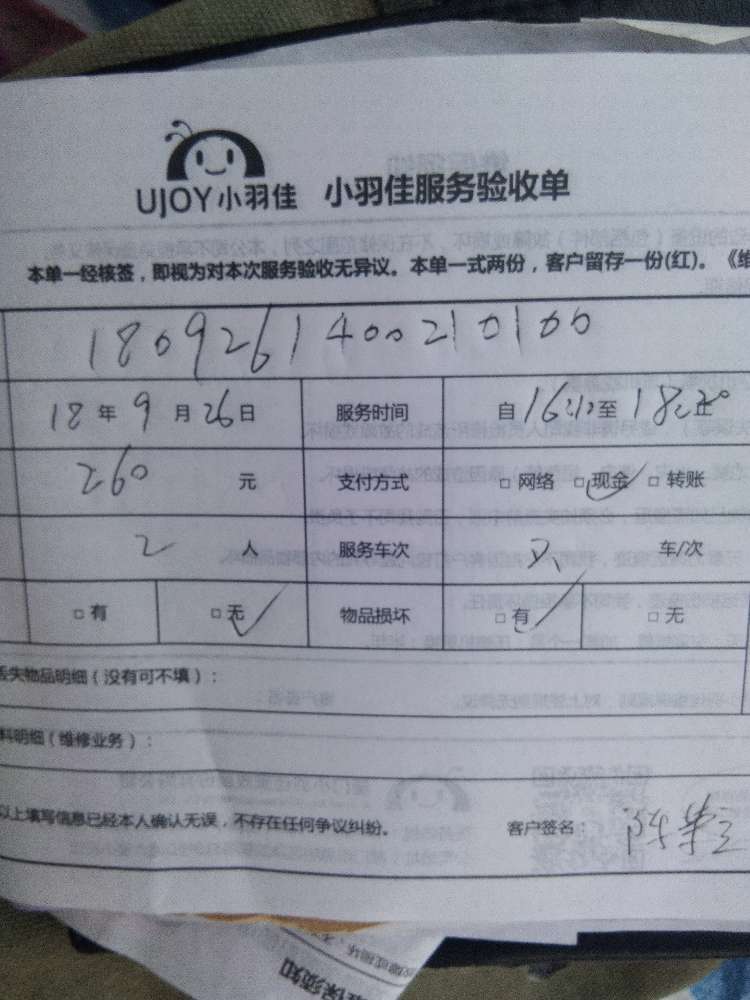 UJOY小羽佳 小羽佳服务验收单
本单一经核签，即视为对本次服务验收无异议。本单一式两份，客户留存一份(红)。《维
180926140021 0100
18年9月26日 服务时间 自16:10至18:20止
260元 支付方式 □网络 □现金 □转账
2人 服务车次 车/次
□有 □无 物品损坏 □有 □无
丢失物品明细（没有可不填）：
料明细（维修业务）：
以上填写信息已经本人确认无误，不存在任何争议纠纷。 客户签名：
保须知